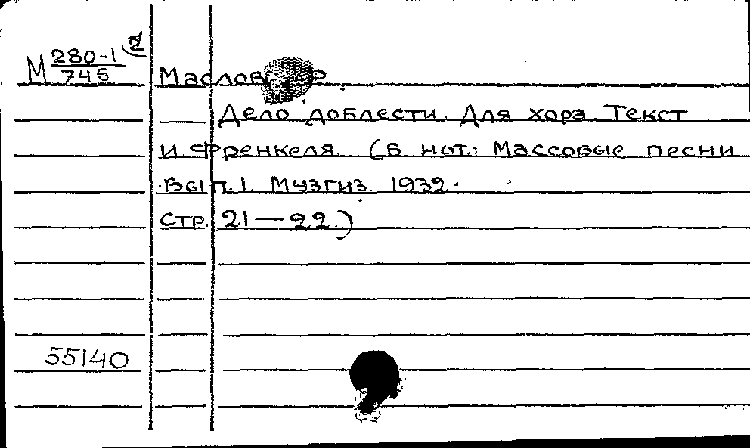 М 280-1 / 745
Маслов
— Дело доблести. Для хора. Текст
И. Френкеля. (В нот.: Массовые песни
Вып. 1. Музгиз. 1932.
Стр. 21—22.)
55140